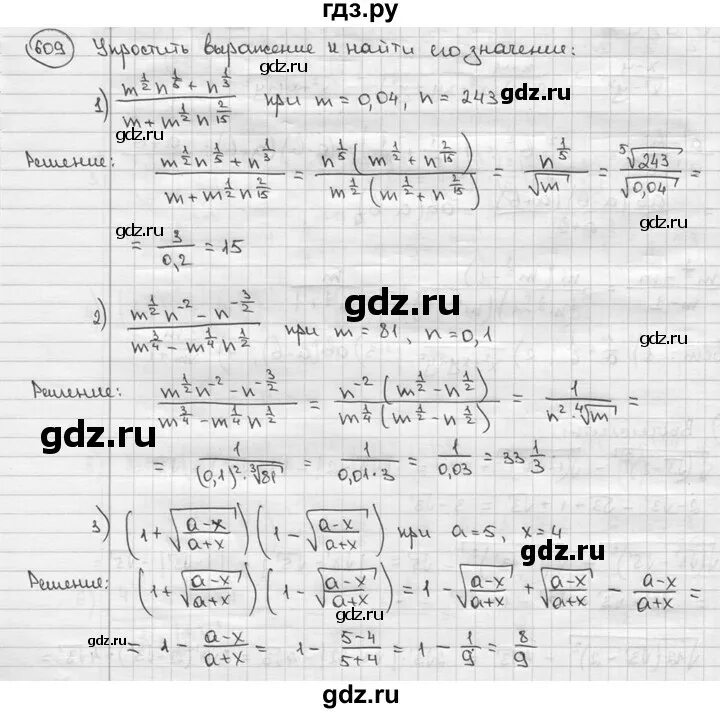 гдз.ру
609 Упростить выражение и найти его значение:
1) (m^(1/2) n^(1/5) + n^(1/3)) / (m + m^(1/2) n^(2/15)) при m = 0,04, n = 243
gdz.ru gdz.ru gdz.ru
Решение: (m^(1/2) n^(1/5) + n^(1/3)) / (m + m^(1/2) n^(2/15)) = n^(1/5) (m^(1/2) + n^(2/15)) / (m^(1/2) (m^(1/2) + n^(2/15))) = n^(1/5) / √m = ⁵√243 / √0,04 =
gdz.ru gdz.ru
= 3 / 0,2 = 15
gdz.ru gdz.ru
2) (m^(1/2) n^(-2) - n^(-3/2)) / (m^(3/4) - m^(1/4) n^(1/2)) при m = 81, n = 0,1
gdz.ru gdz.ru
Решение: (m^(1/2) n^(-2) - n^(-3/2)) / (m^(3/4) - m^(1/4) n^(1/2)) = n^(-2) (m^(1/2) - n^(1/2)) / (m^(1/4) (m^(1/2) - n^(1/2))) = 1 / (n² · ⁴√m) =
gdz.ru
= 1 / ((0,1)² · ³√81) = 1 / (0,01 · 3) = 1 / 0,03 = 33 1/3
gdz.ru
3) (1 + √((a-x)/(a+x))) (1 - √((a-x)/(a+x))) при a = 5, x = 4
gdz.ru gdz.ru
Решение: (1 + √((a-x)/(a+x))) (1 - √((a-x)/(a+x))) = 1 - √((a-x)/(a+x)) + √((a-x)/(a+x)) - (a-x)/(a+x) =
gdz.ru
= 1 - (a-x)/(a+x) = 1 - (5-4)/(5+4) = 1 - 1/9 = 8/9
gdz.ru gdz.ru
gdz.ru